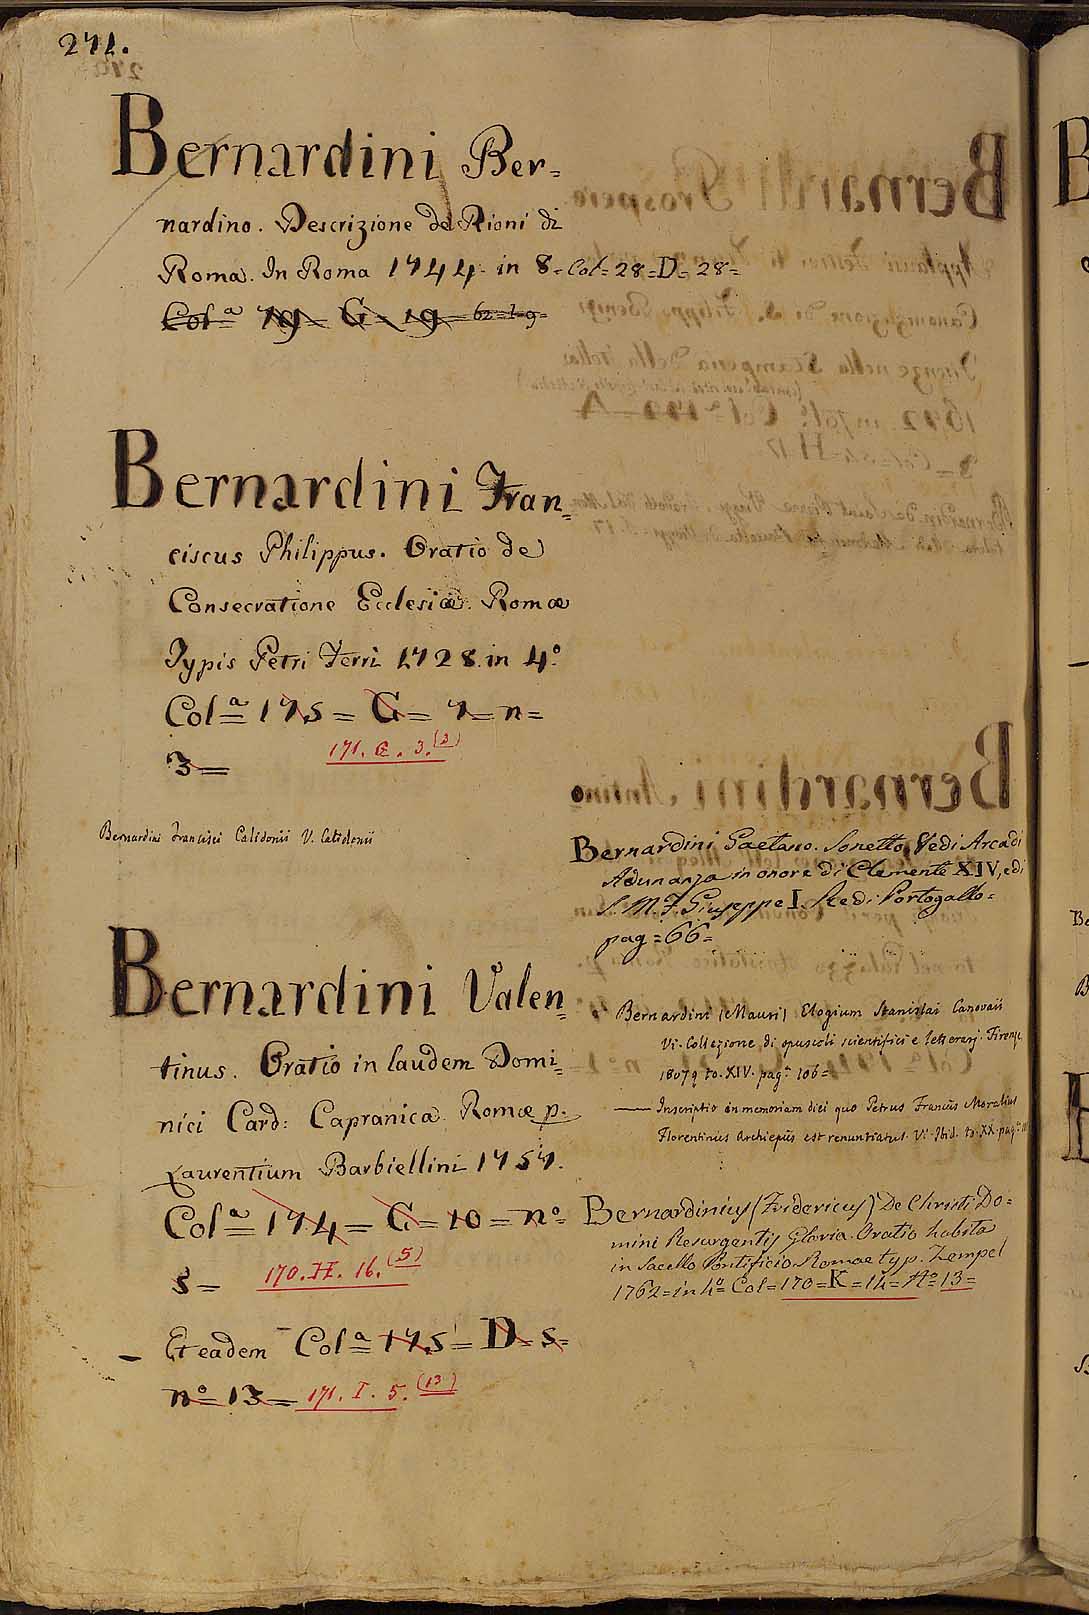 271.
Bernardini Ber=
nardino. Descrizione de Rioni di
Roma. In Roma 1744. in 8=Col=28=D=28=
Col.a 79=G=19=62=I=9=
Bernardini Fran=
ciscus Philippus. Oratio de
Consecratione Ecclesiæ. Romæ
Typis Petri Ferri 1728. in 4.o
Col.a 175=G=7=n=
3=
171. G. 3.(3)
Bernardini Francisci Calidonii V. Calidonii
Bernardini Valen=
tinus. Oratio in laudem Domi=
nici Card: Capranica. Romæ p.
Laurentium Barbiellini 1757.
Col.a 174=G=10=n.o
5=
170. H. 16.(5)
Et eadem Col.a 175=D=5=
n.o 13=
171. I. 5.(13)
Bernardini Gaetano. Sonetto. Vedi Arcadi
Adunanza in onore di Clemente XIV, e di
S. M. F. Giuseppe I. Re di Portogallo=
pag=66=
Bernardini (Mauri) Elogium Stanislai Canovaii
Vi. Collezione di opuscoli scientifici e letterarj. Firenze
1807 to. XIV. pag. 106=
—— Inscriptio in memoriam diei quo Petrus Franciis Moralius
Florentinus Archiepiis est renuntiatus. Vi. Ibid. to. XX. pag.
Bernardinius (Fridericus) De Christi Do=
mini Resurgentis Gloria. Oratio habita
in Sacello Pontificio. Romae typ. Zempel
1762=in 4.o Col=170=K=14=No=13=